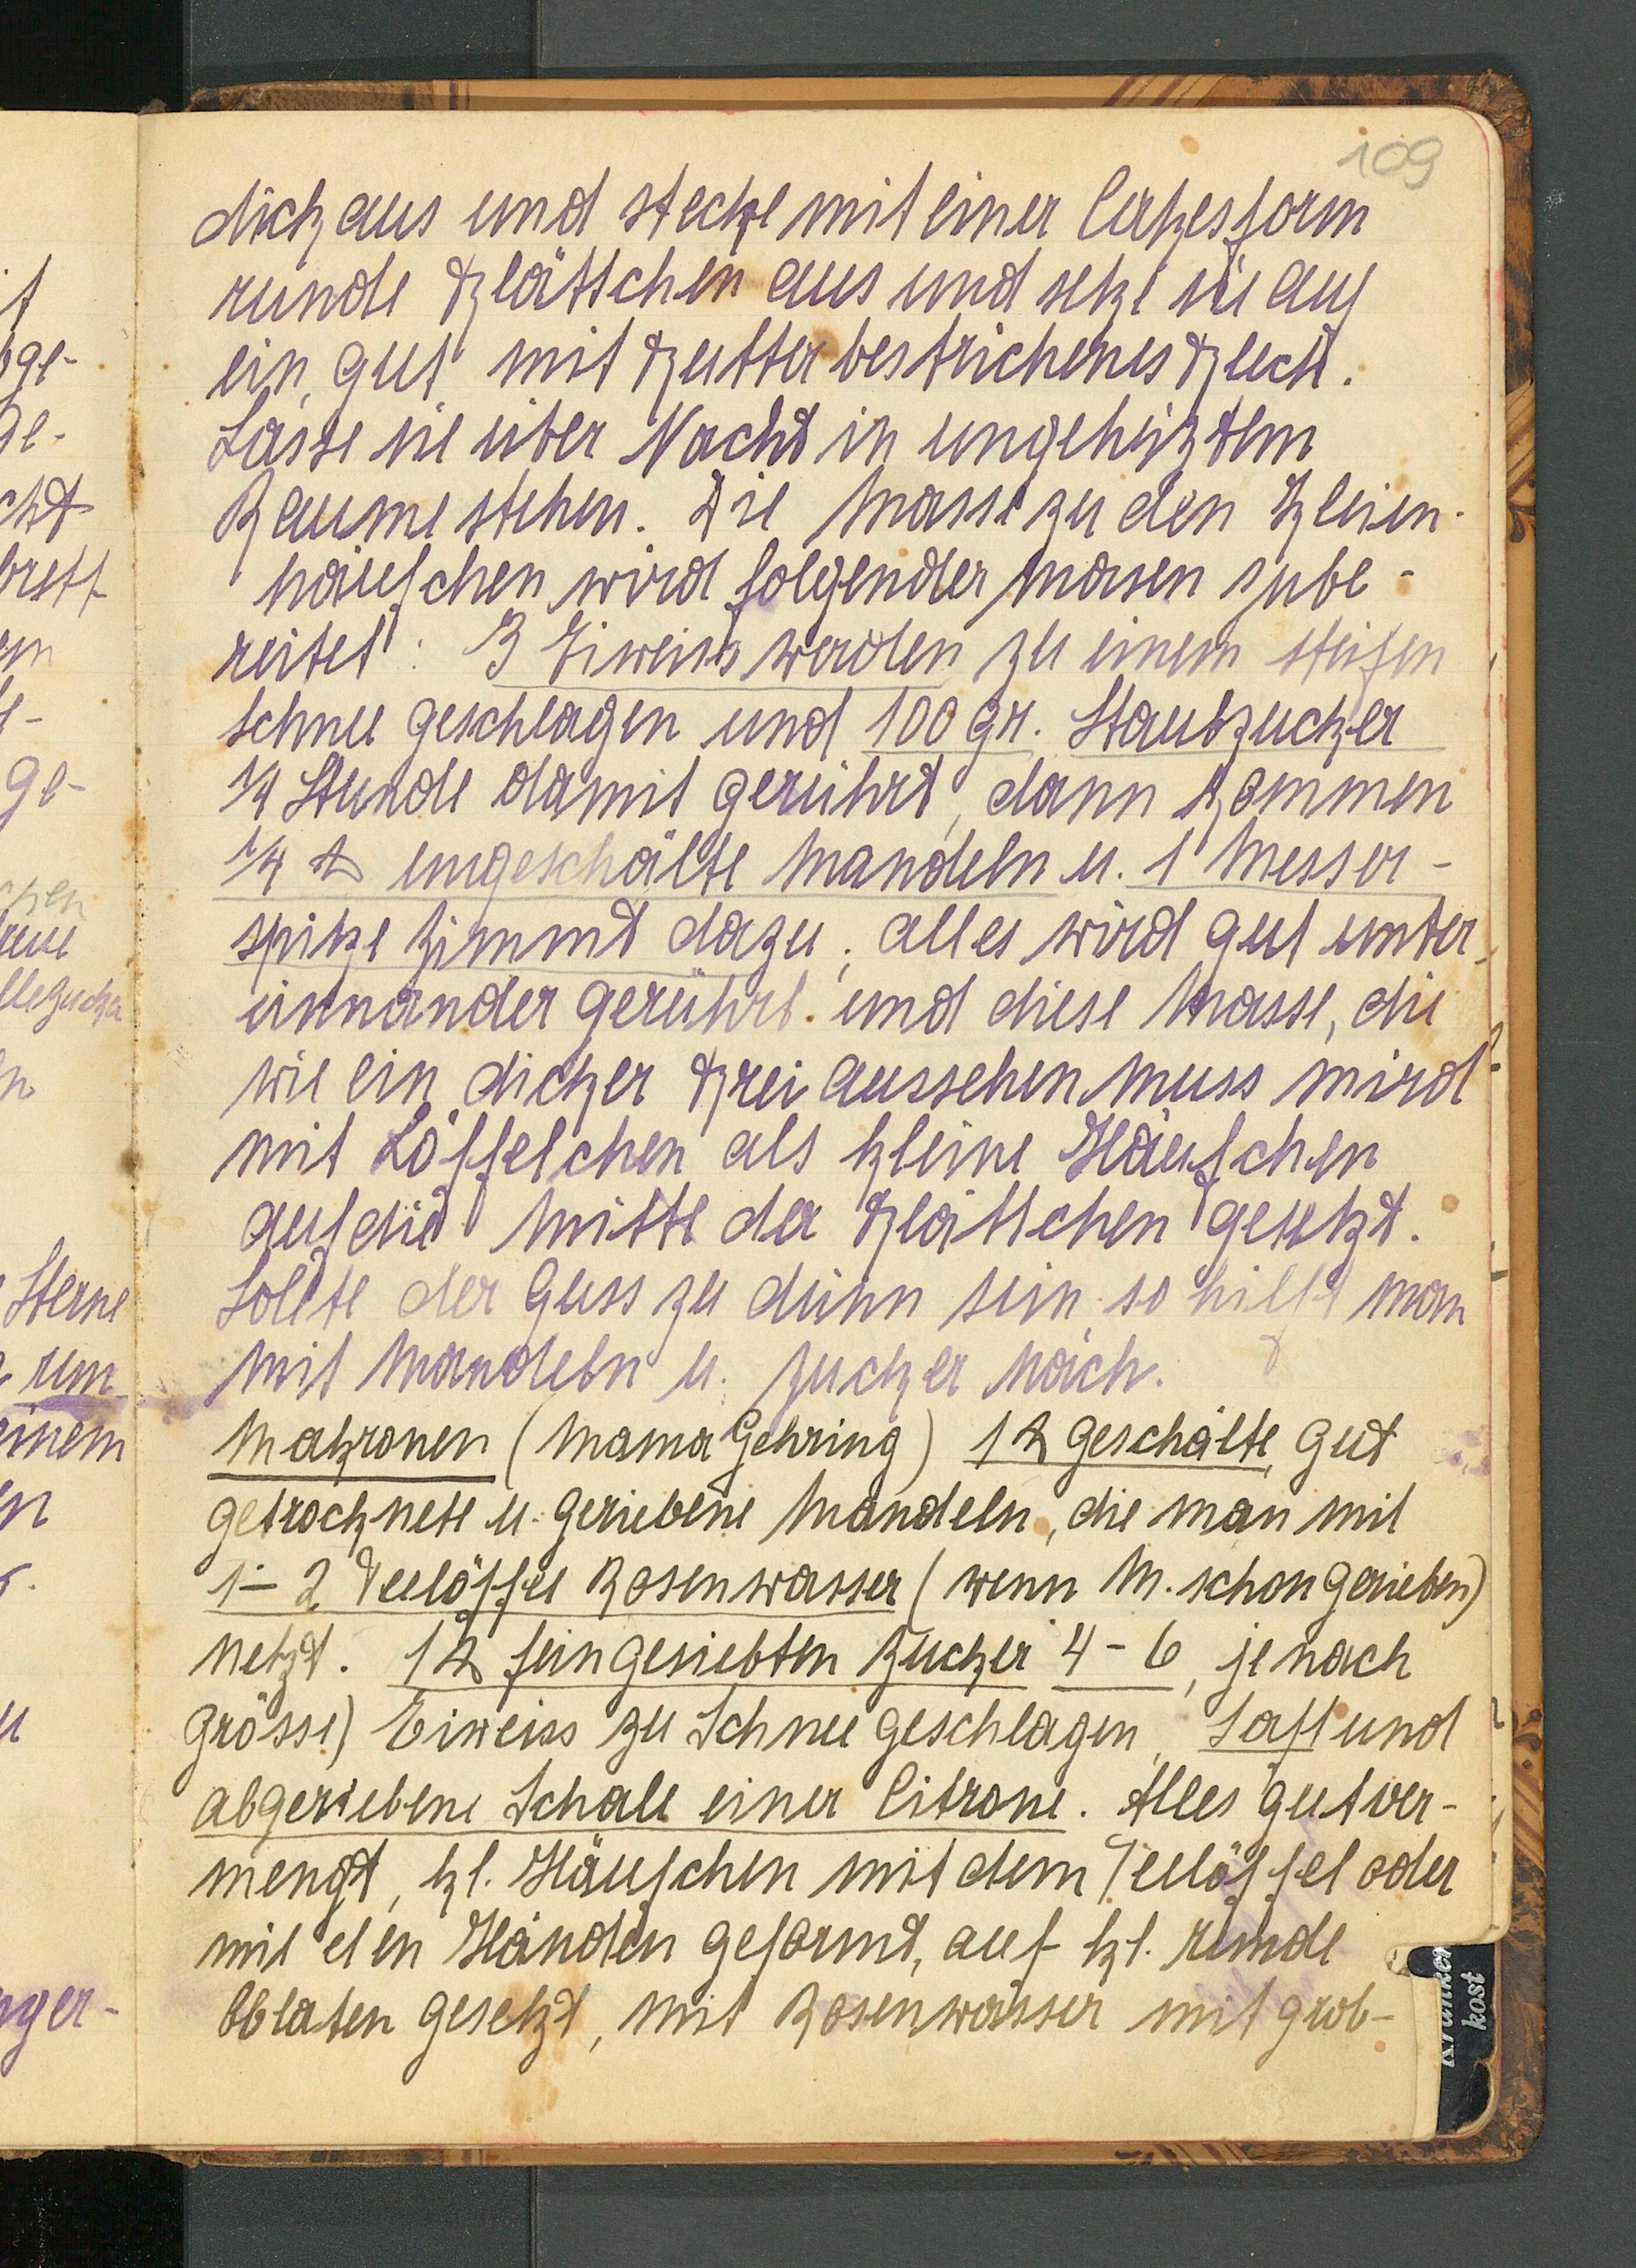 109
dick aus und steche mit einer Cakesform
runde Blättchen aus und setze sie auf
ein, gut mit Butter bestrichenes Blech.
Lasse sie über Nacht in ungeheiztem
Raume stehen. Die Masse zu den kleien-
häufchen wird folgender Masen zube-
reitet: 3 Eiweiss werden zu einem steifen
Schnee geschlagen und 100 gr. Staubzucker
1/4 Stunde damit gerührt, dann kommen
1/4 ℔ ungeschälte Mandeln u. 1 Messer-
spitze Zimmt dazu; alles wird gut unter,
einnander gerührt und diese Masse, die
wie ein dicker Brei aussehen muss wird
mit Löffelchen als kleine Häufchen
auf die Mitte der Blättchen gesetzt.
Sollte der Guss zu dünn sein so hilft man
mit Mandeln u. Zucker nach.
Makronen (Mama Gehring) 1 ℔ geschälte, gut
getrocknete u. geriebene Mandeln, die man mit
1-2 Teelöffel Rosenwasser (wenn M. schon gerieben)
netzt. 1 ℔ feingesiebten Zucker 4-6, je nach
Grösse) Eiweiss zu Schnee geschlagen, Saft und
abgeriebene Schale einer Citrone. Alles gut ver-
mengt, kl. Häufchen mit dem Teelöffel oder
mit den Händen geformt, auf kl. runde
Oblaten gesetzt, mit Rosenwasser mit grob-
Kranken
kost
ge-
brett
ge-
Sterne
um
einem